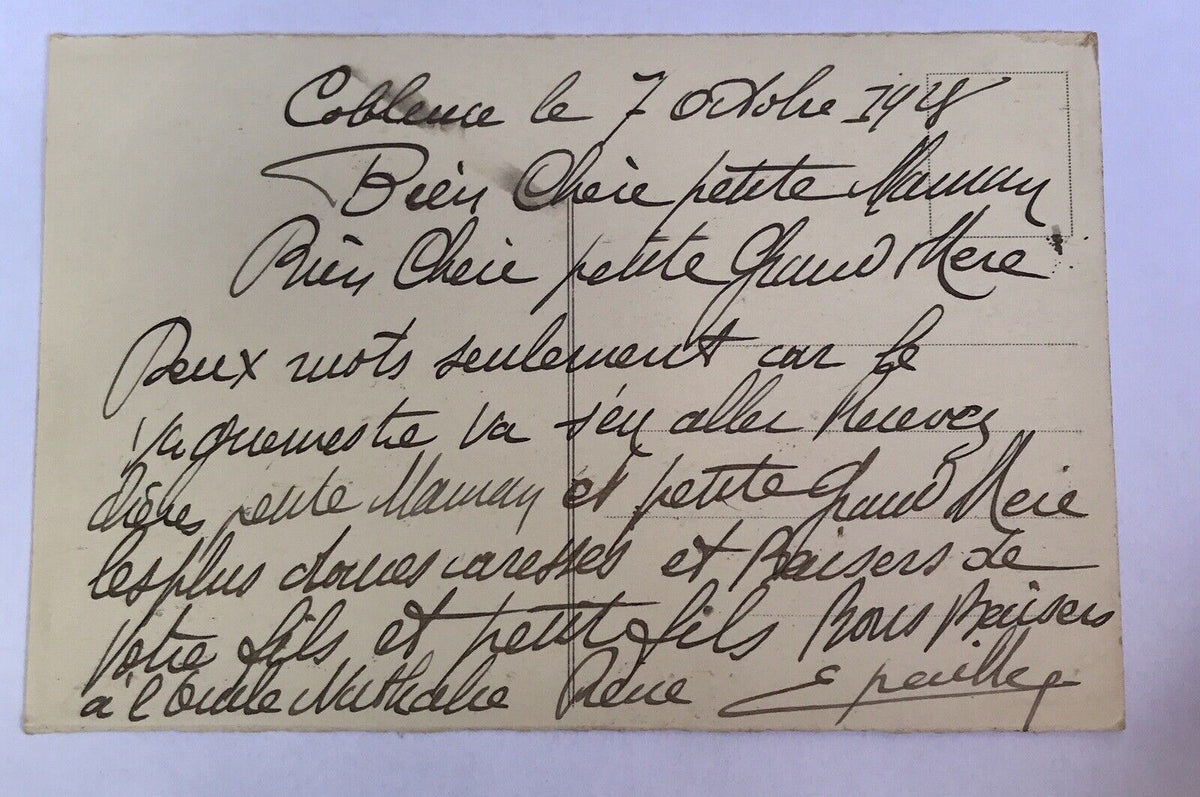 Coblence le 7 Octobre 1928
Bien Chère petite Maman
Bien Chère petite Grand Mère
Deux mots seulement car le
vaguemestre va s'en aller Recevez
chères petite Maman et petite Grand Mère
les plus douces caresses et Baisers de
Votre fils et petit fils Bons Baisers
à l'Oncle Nathalie René